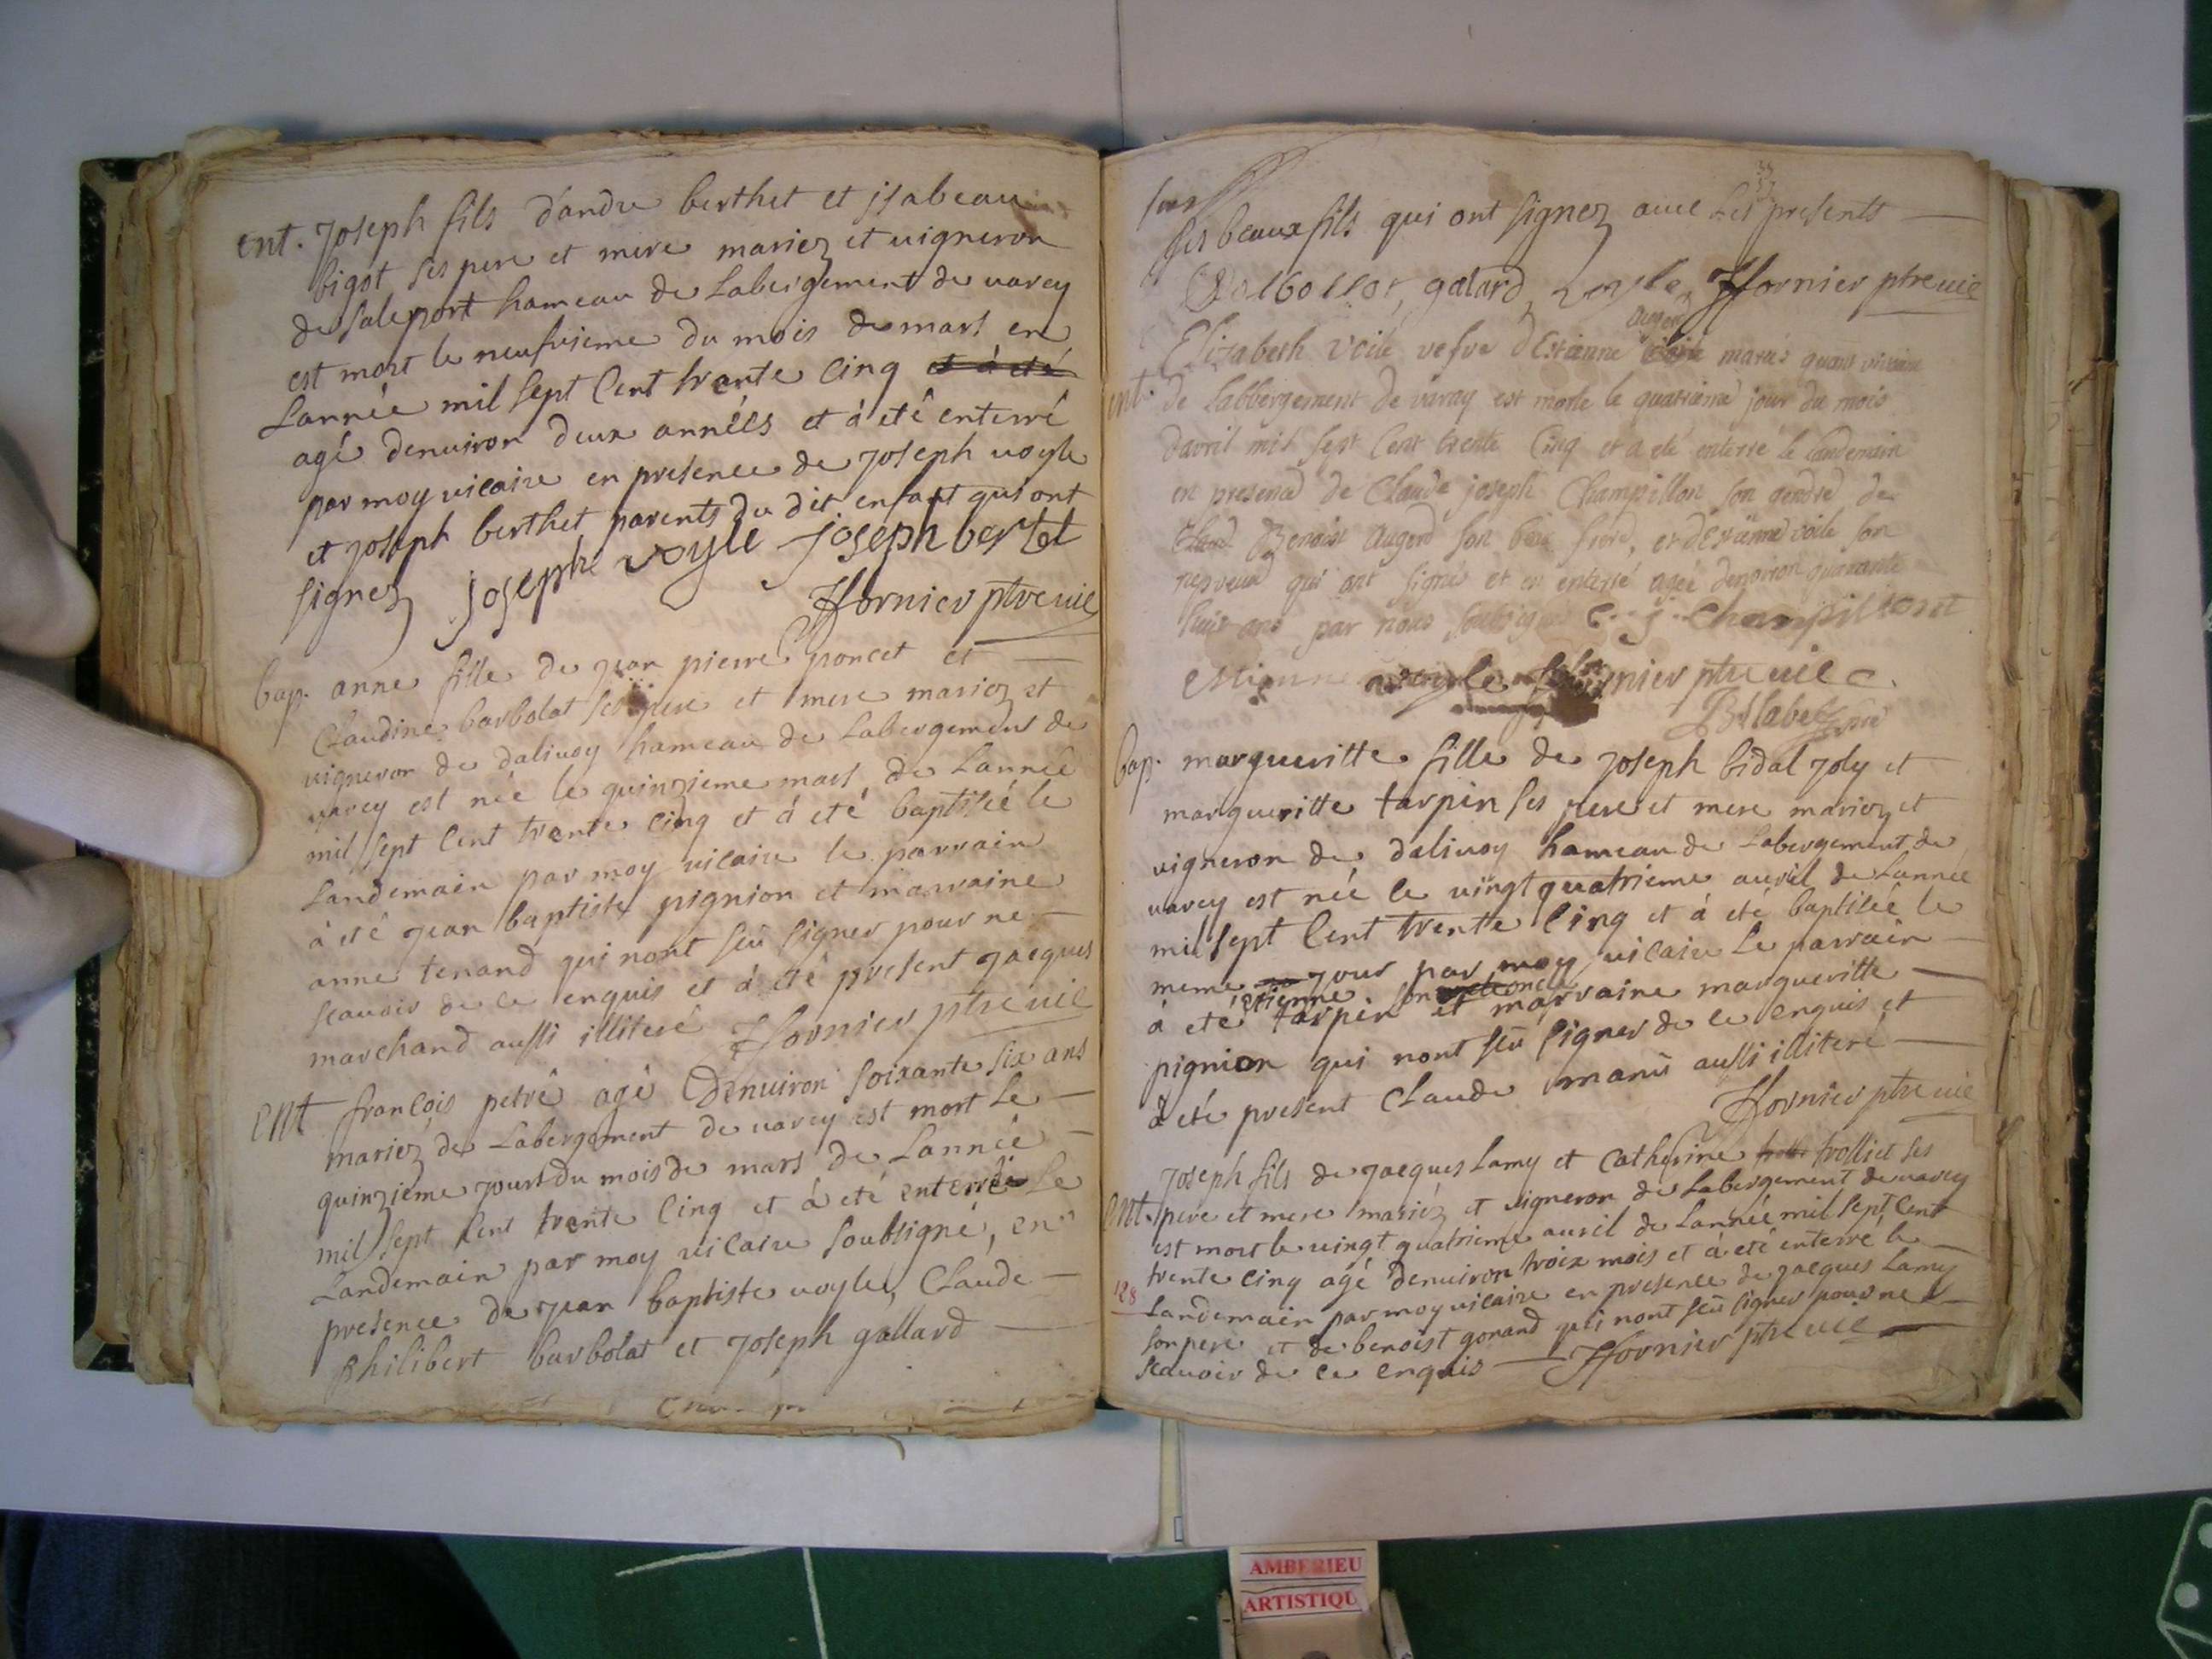 ent. Joseph fils dandre berthet et jsabeau
bigot ses pere et mere mariez et uigneron
de saleport hameau de Labergement de uarey
est mort le neufuieme du mois de mars en
Lannée mil sept Cent trente Cinq et à eté
agé denuiron deux années et à eté enterré
par moy uicaire en presence de Joseph uoyle
et Joseph berthet parents du dit enfant qui ont
signez Joseph voyle joseph bertet
Hornier ptre uic
bap. anne fille de jean pierre poncet et
Claudine barbolat ses pere et mere mariez et
uigneron de daliuoy hameau de Labergement de
uarey est née le quinzieme mars de Lannée
mil sept Cent trente Cinq et à eté baptisée le
Landemain par moy uicaire le parrain
à eté jean baptiste pignion et marraine
anne tenand qui nont sçû signer pour ne
scauoir de ce enquis et à eté present jacques
marchand aussi illiteré Hornier ptre uic
ent francois petré agé denuiron soixante six ans
mariez de Labergement de uarey est mort Le
quinzieme jour du mois de mars de Lannée
mil sept Cent trente Cinq et à eté enterré Le
Landemain par moy uicaire soubsigné, en
présence de jean baptiste uoyle, Claude
philibert barbolat et Joseph gallard
ses beaux fils qui ont signez auec Les presents
galard, voyle, Hornier ptre uic
Elizabeth Voile vefve dEstienne Augerd mariés quant vivoient
ent. de Labbergement de varay est morte le quatrieme jour du mois
davril mil sept Cent trente Cinq et a eté enterré le Landemain
en presence de Claude joseph Champillon son gendre de
Benoist Augerd son beau frere, et dEstienne voile son
nepveud qui ont signé et en enterré agée denviron quarante
huit ans par nous soubsignes C. j. Champillont
estienne voyle Hornier ptre uic
bap. margueritte fille de Joseph bidal Joly et
margueritte tarpin ses pere et mere mariez et
uigneron de daliuoy hameau de Labergement de
uarey est née le uingt quatrieme auril de Lannee
mil sept Cent trente Cinq et à eté baptisée le
meme jour par moy uicaire Le parrain
à eté etienne tarpin son oncle et marraine margueritte
pignion qui nont sçû signer de ce enquis et
à eté present Claude manû aussi illiteré
Hornier ptre uic
Joseph fils de jacques Lamy et Catherine trolliet ses
ent. pere et mere mariéz et uigneron de Labergement de uarey
est mort le uingt quatrieme auril de Lannée mil sept Cent
trente cinq agé denuiron troix mois et à eté enterré le
128
Landemain par moy uicaire en presence de jacques Lamy
son pere et de benoist gonand qui nont sçû signer pour ne
scauoir de ce enquis Hornier ptre uic
AMBERIEU
ARTISTIQU